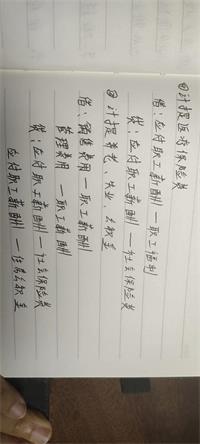 ④计提医疗保险类
借:应付职工薪酬—职工福利
贷:应付职工薪酬—社会保险类
④计提养老、失业、公积金
借:销售费用—职工薪酬
管理费用—职工薪酬
贷:应付职工薪酬—社会保险类
应付职工薪酬—住房公积金